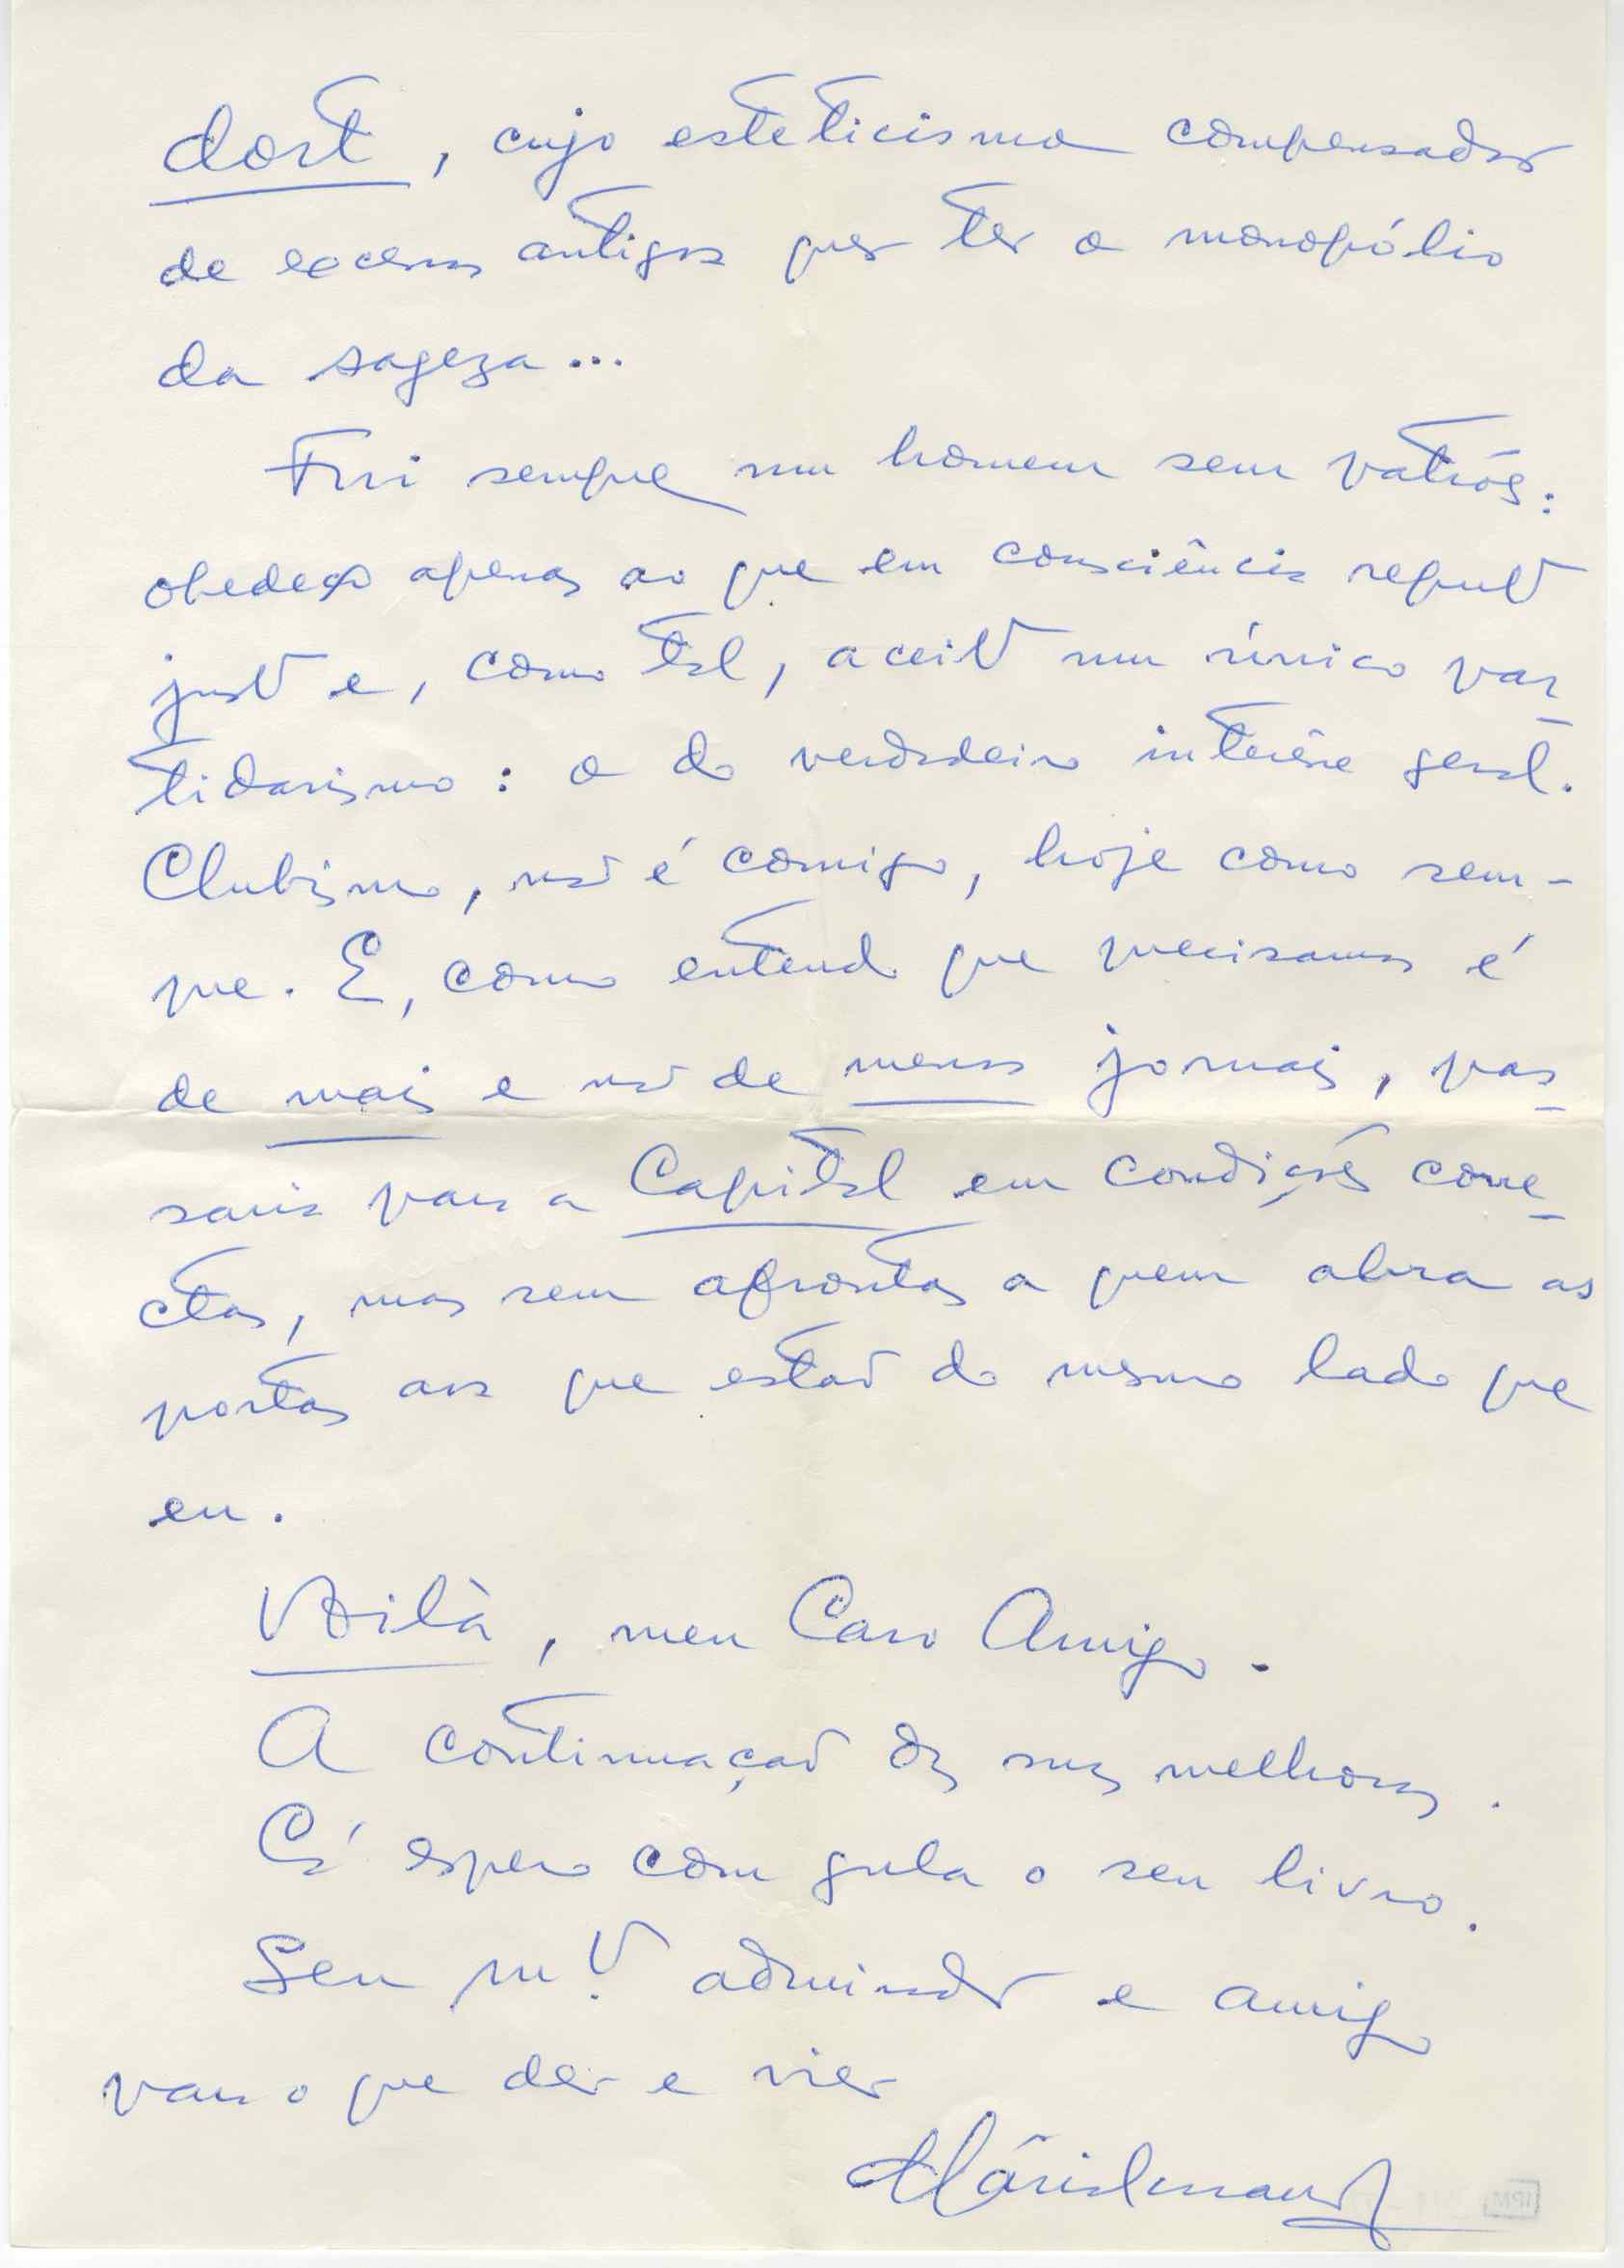 dort, cujo esteticismo compensador
de excessos antigos quer ter o monopólio
da sageza...
Fui sempre um homem sem patrões:
obedeço apenas ao que em consciência reputo
justo e, como tal, aceito um único par-
tidarismo: o do verdadeiro interêsse geral.
Clubismo, não é comigo, hoje como sem-
pre. E, como entendo que precisamos é
de mais e não de menos jornais, pas-
saria para a Capital em condições corre-
ctas, mas sem afrontas a quem abra as
portas aos que estão do mesmo lado que
eu.
Voilà, meu Caro Amigo.
A continuação das suas melhoras.
Cá espero com gula o seu livro.
Seu mto admirador e amigo
para o que der e vier
IPM